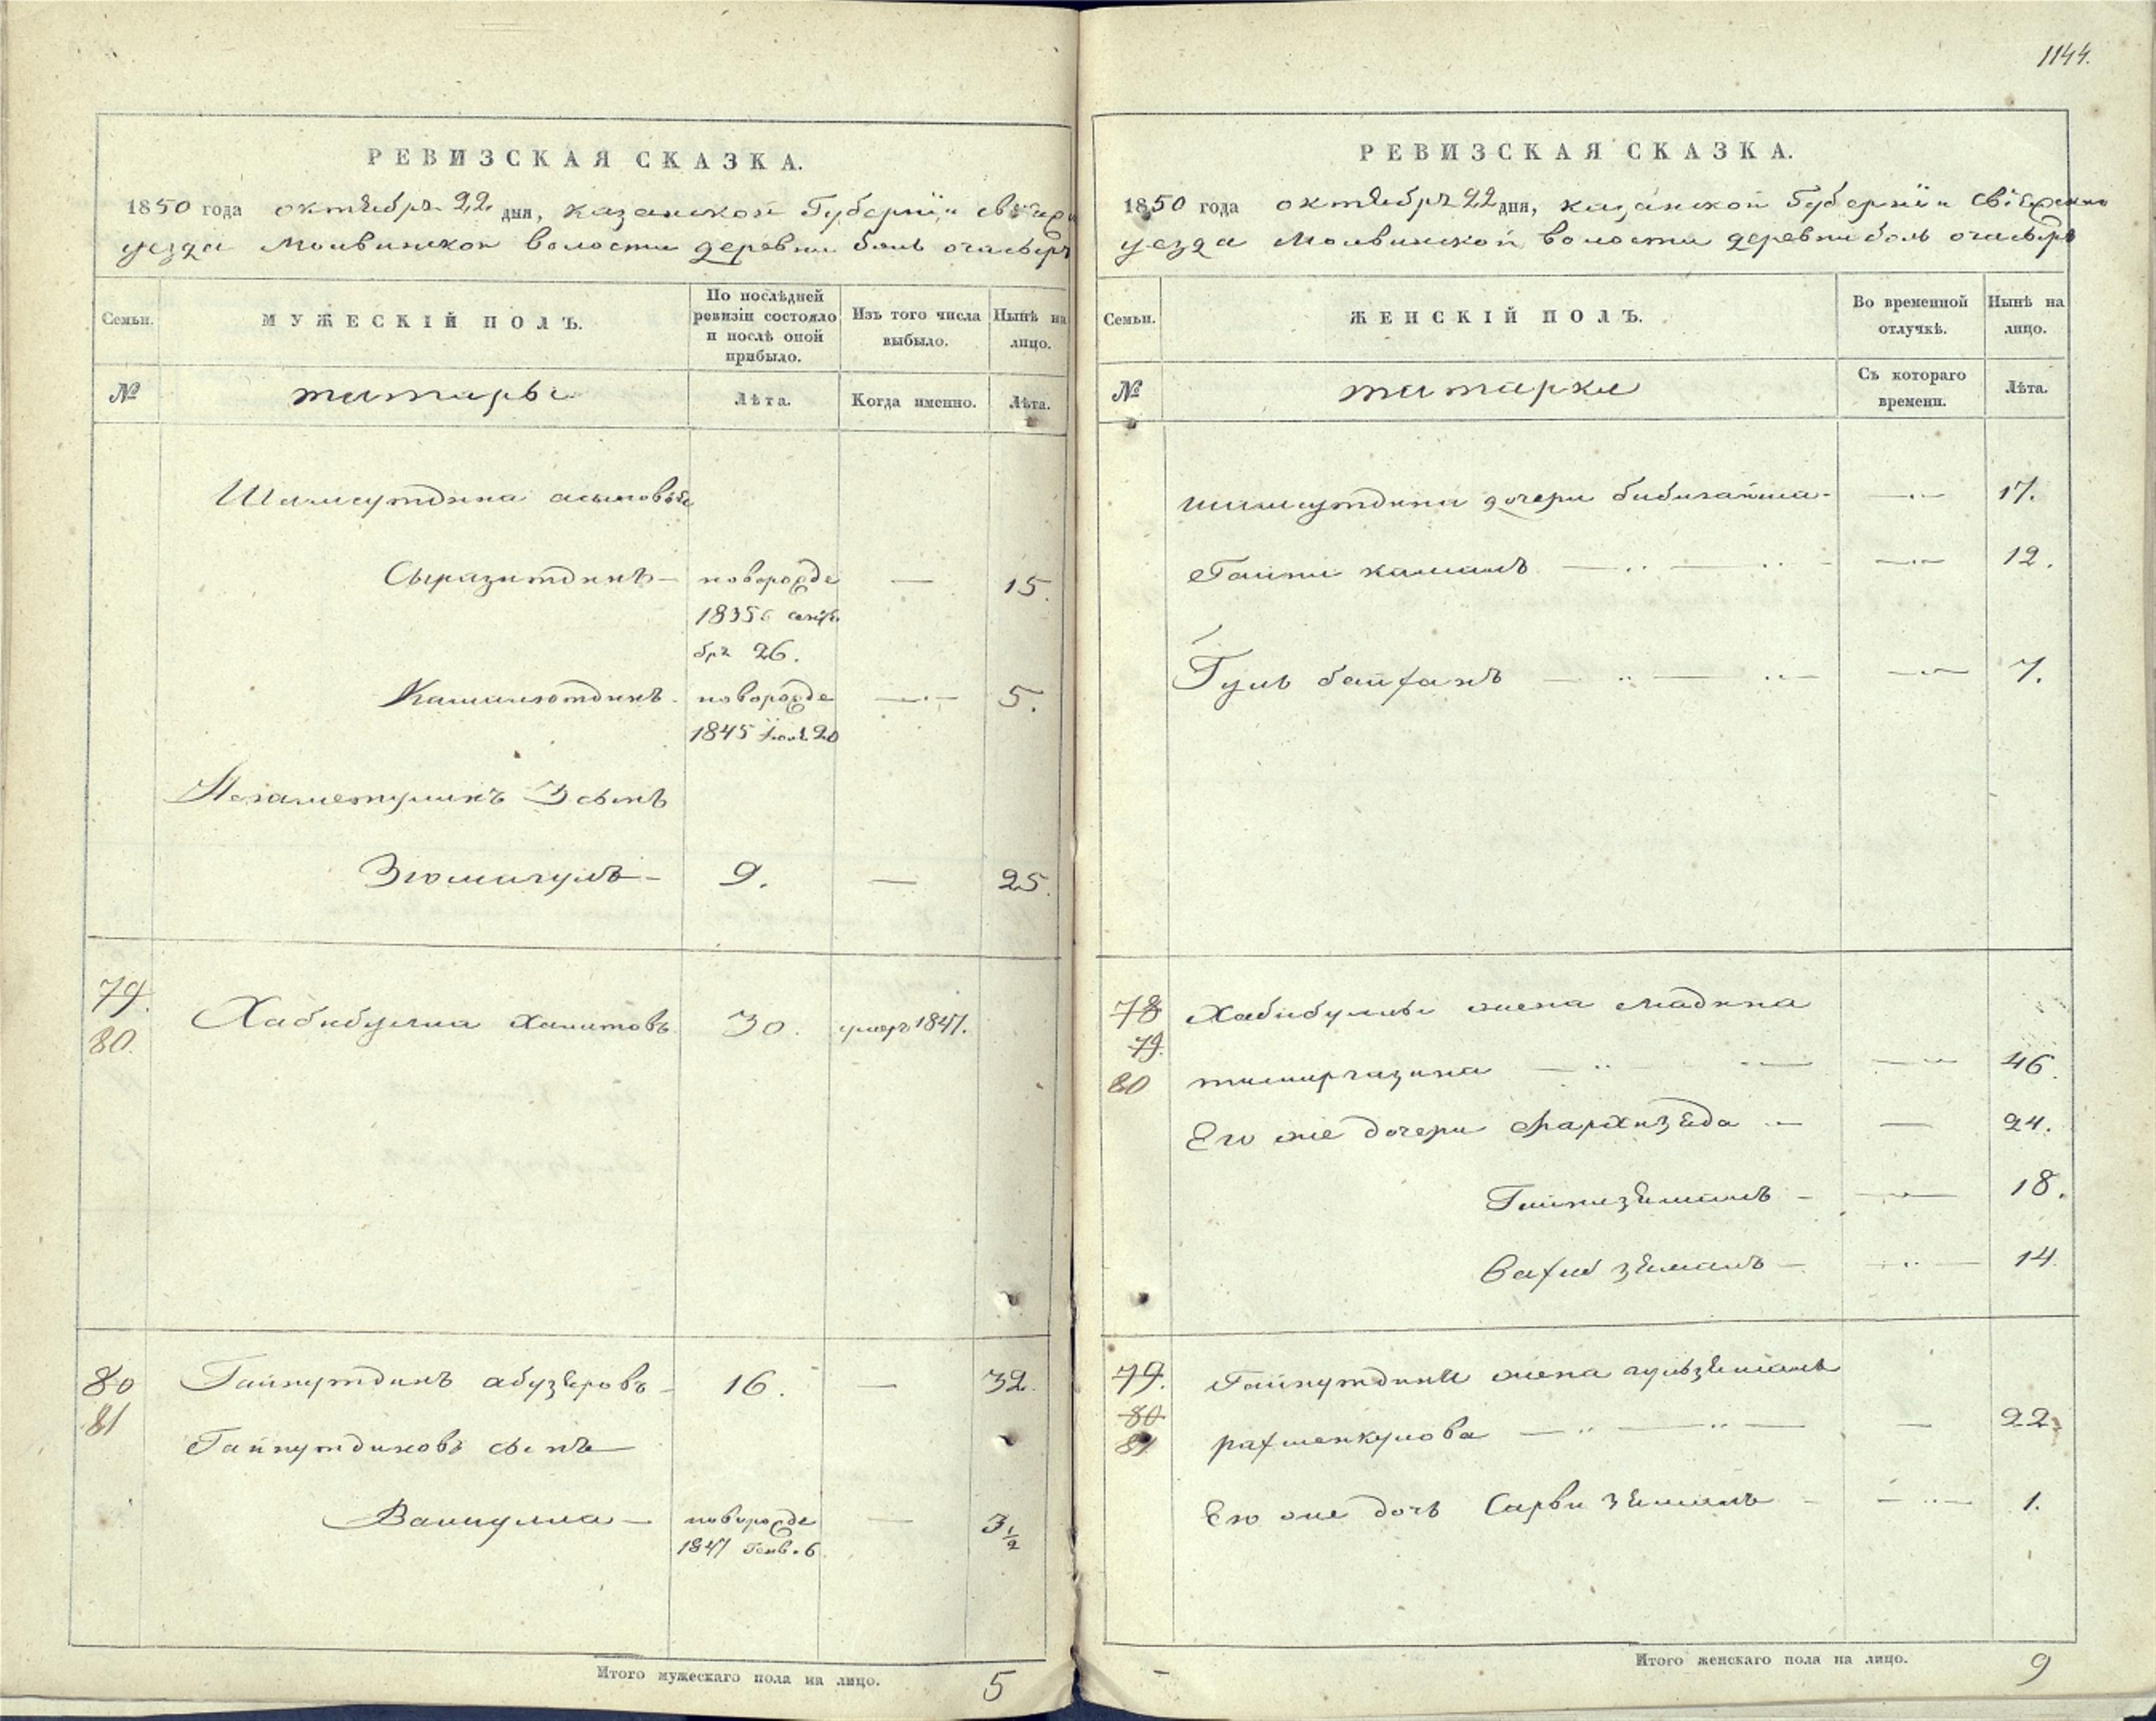 1144.
РЕВИЗСКАЯ СКАЗКА.
1850 года октября 22 дня, казанской Губернии
уезда Молвинской волости деревни бол очасыръ
Семьи. МУЖЕСКІЙ ПОЛЪ. По послѣдней ревизіи состояло и послѣ оной прибыло. Изъ того числа выбыло. Нынѣ на лицо.
№ татары Лѣта. Когда именно. Лѣта.
Шамсутдина сыновья
Сыразитдинъ — новорожде — 15.
1835 сентя
бря 26.
Камалютдинъ новорожде — 5.
1845 20
3 сынъ
Зюмагулъ — 9. — 25.
79.
80. Хабибулла Хамитовъ 30. умеръ 1847.
80
81 Гайнутдинъ абузяровъ 16. — 32.
Гайнутдиновъ сынъ
Валиулла — новорожде — 3 1/2
1847 Генв. 6
Итого мужескаго пола на лицо. 5
РЕВИЗСКАЯ СКАЗКА.
1850 года октября 22 дня, казанской Губернии
уезда Молвинской волости деревни бол очасыръ
Семьи. ЖЕНСКІЙ ПОЛЪ. Во временной отлучкѣ. Нынѣ на лицо.
№ татарки Съ котораго времени. Лѣта.
шамсутдина дочери 17.
Гайни камалъ 12.
Гуль 7.
78 Хабибуллы жена Мадина
79.
80 тимиргазина 46.
Его же дочери Фархизяда — 24.
Гайнизямалъ — 18.
зямалъ — 14.
79. Гайнутдина жена гульзямалъ
80
81 рахменкулова — 22.
Его же дочь Сарви зямалъ 1.
Итого женскаго пола на лицо. 9